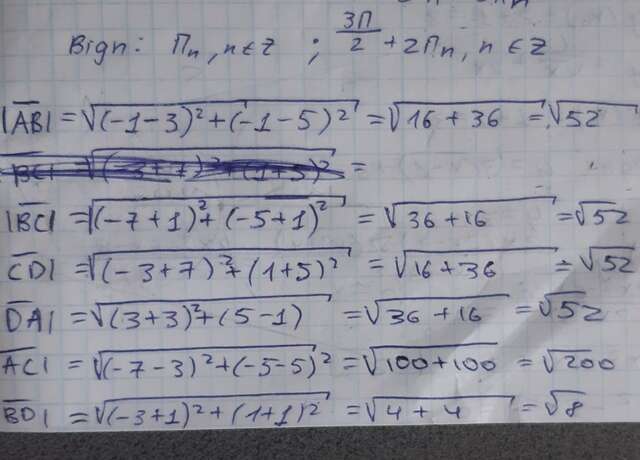 Відп: Пn, n∈Z ; 3П/2 + 2Пn, n∈Z
|AB| = √(-1-3)²+(-1-5)² = √16+36 = √52
|BC| = √(-7+1)²+(-5+1)² = √36+16 = √52
CD| = √(-3+7)²+(1+5)² = √16+36 = √52
DA| = √(3+3)²+(5-1) = √36+16 = √52
AC| = √(-7-3)²+(-5-5)² = √100+100 = √200
BD| = √(-3+1)²+(1+1)² = √4+4 = √8